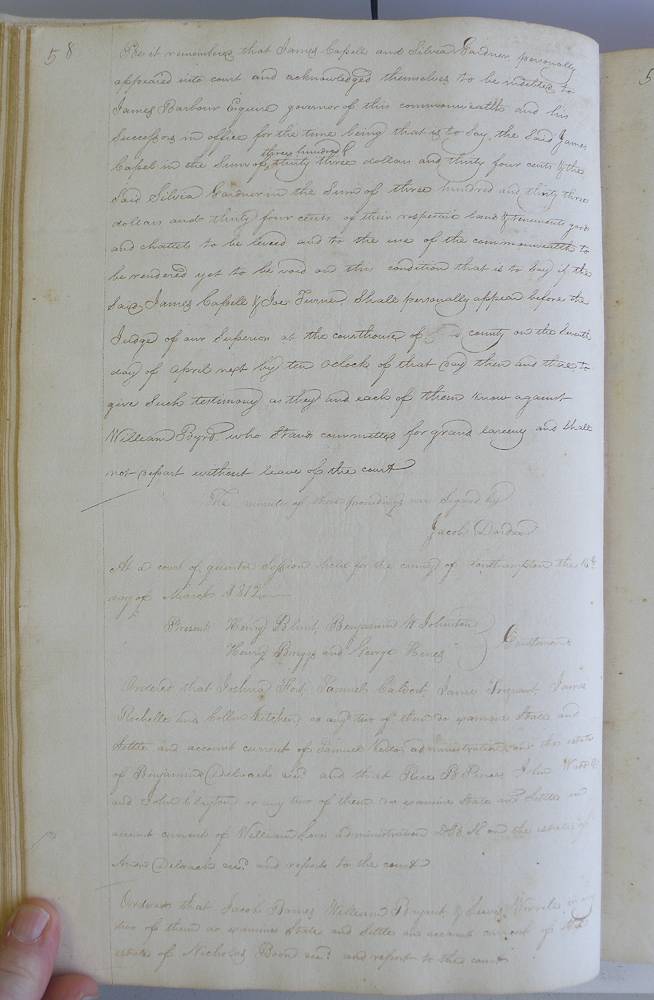 58
Be it remembered that James Capell and Silvia Gardner personally
appeared into court and acknowledged themselves to be indebted to
James Barbour Esquire governor of this commonwealth and his
Successors in office for the time being that is to Say the Said James
three hundred &
Capel in the Sum of thirty three dollars and thirty four cents & the
Said Silvia Gardner in the Sum of three hundred and thirty three
dollars and thirty four cents of their respective lands & tenements goods
and chattels to be levied and to the use of the commonwealth to
be rendered yet to be void on this condition that is to Say if the
Said James Capell & Joe Turner Shall personally appear before the
Judge of our Superior at the courthouse of county on the
day of April next by ten Oclock of that day then and there to
give Such testimony as they and each of them know against
William Byrd who Stands committed for grand larceny and Shall
not depart without leave of the court
The minutes of these proceedings were Signed by
Jacob Darden
At a court of quarter Session held for the county of Southampton the
day of March 1812
Present Henry Blunt, Benjamin W Johnston
Henry Briggs and George Gentlemen
Ordered that Joshua Samuel Calvert, James James
Rochelle and Collin Kitchen or any two of them do examine State and
Settle an account current of Samuel administration on the estate
of Benjamin and that John
and John Clayton or any two of them do examine State and Settle an
account current of William administration on the estate of
and report to the court
Ordered that Jacob Barnes William Bryant & or any
two of them do examine State and Settle an account current of the
estate of Nicholas and report to the court
5